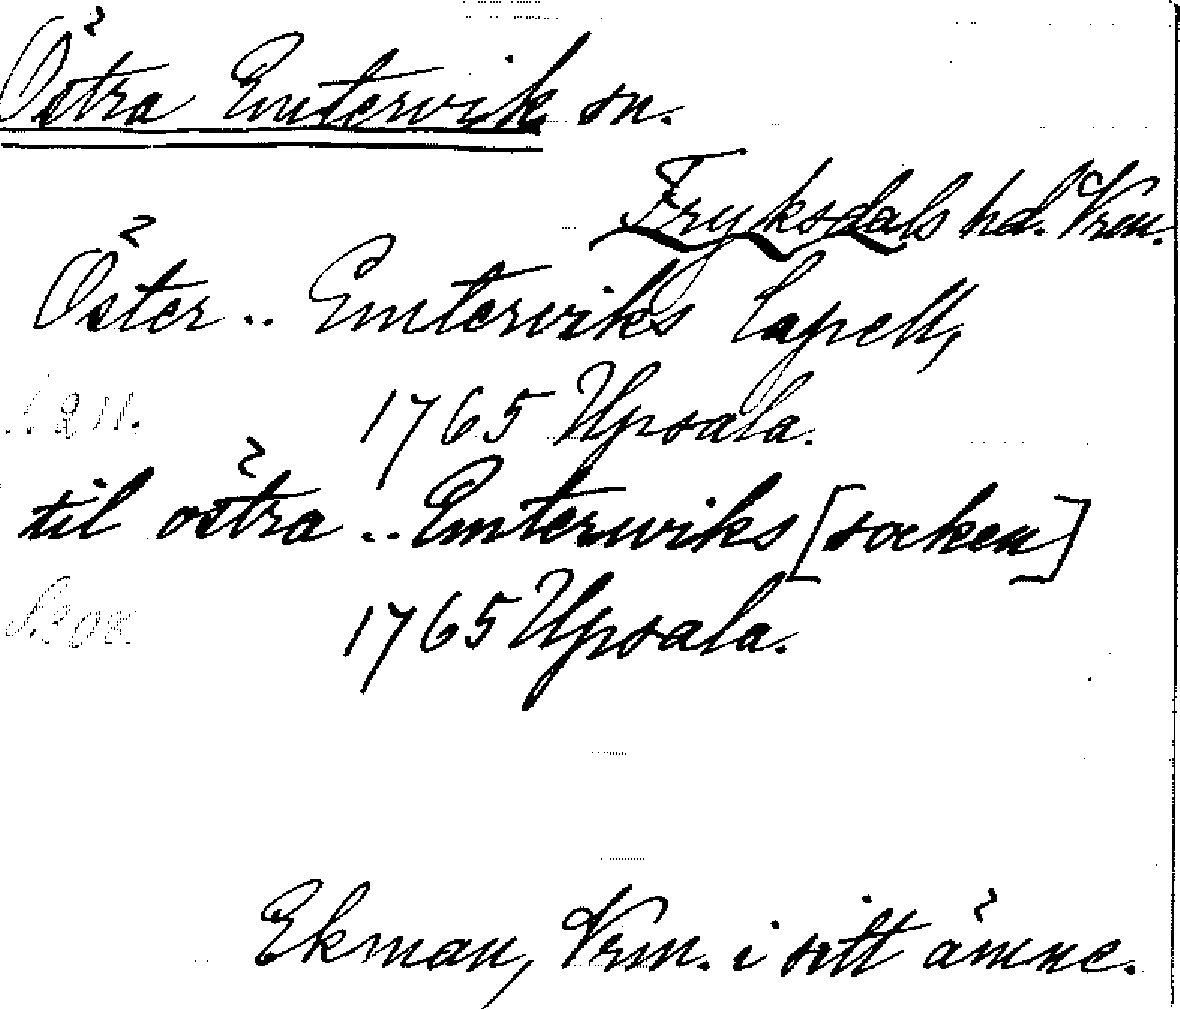 Östra Emtervik sn.
Fryksdals hd. Vrm.
Öster .. Emterviks Capell,
1765 Upsala.
til östra .. Emterwiks [socken]
1765 Upsala.
Ekman, Vrm. i sitt ämne.